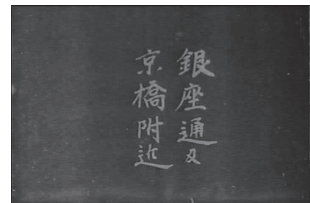 銀座通及
京橋附近